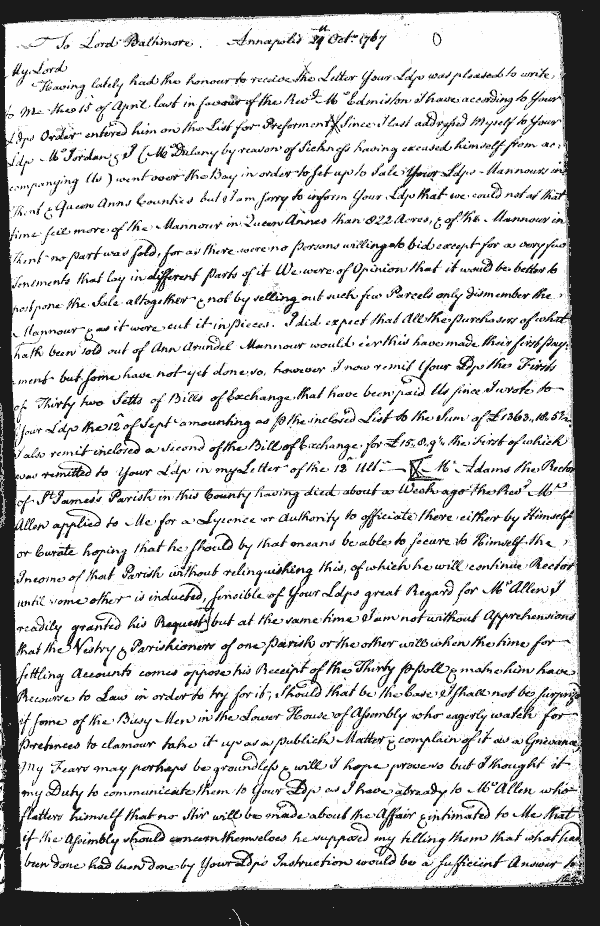 To Lord Baltimore. Annapolis 24th Octr. 1767
My Lord
Having lately had the honour to receive the Letter Your Ldp was pleased to write
to Me the 15 of April last in favour of the Revd. Mr Edmiston I have according to Your
Ldps Order entered him on the List for Preferment Since I last addressed Myself to Your
Ldp Mr Jordan & I (Mr Dulany by reason of Sickness having excused himself from ac:
companying Us) went over the Bay in order to set up to Sale Your Ldps Mannours in
Kent & Queen Anns Counties but I am sorry to inform Your Ldp that we could not at that
time sell more of the Mannour in Queen Annes than 822 Acres, & of the Mannour in
Kent no part was sold, for as there were no persons willing to bid except for a very few
Tenements that lay in different parts of it We were of Opinion that it would be better to
postpone the Sale altogether & not by selling out such few Parcels only dismember the
Mannour & as it were cut it in pieces. I did expect that All the purchasers of what
hath been sold out of Ann Arundel Mannour would e'er this have made their first pay:
ment but some have not yet done so, however I now remit Your Ldp the Firsts
of Thirty two Setts of Bills of Exchange that have been paid Us since I wrote to
Your Ldp the 12th of Sept amounting as p the inclosed List to the Sum of £1363..18.5½
I also remit inclosed a Second of the Bill of Exchange for £15.8.9½ the First of which
was remitted to Your Ldp in my Letter of the 12th Ult. — Mr Adams the Rector
of St James's Parish in this County having died about a Week ago the Revd Mr
Allen applied to Me for a Lycence or Authority to officiate there either by Himself
or Curate hoping that he should by that means be able to secure to Himself the
Income of that Parish without relinquishing this, of which he will continue Rector
until some other is inducted, sencible of Your Ldps great Regard for Mr Allen I
readily granted his Request, but at the same time I am not without Apprehensions
that the Vestry & Parishioners of one parish or the other will when the time for
settling Accounts comes oppose his Receipt of the Thirty p poll & make him have
Recourse to Law in order to try for it; Should that be the Case I shall not be surprized
if some of the Busy Men in the Lower House of Assembly who eagerly watch for
pretences to clamour take it up as a publick Matter & complain of it as a Grievance
My Fears may perhaps be groundless & will I hope prove so but I thought it
my Duty to communicate them to Your Ldp as I have already to Mr Allen who
flatters himself that no Stir will be made about the Affair & intimated to Me that
if the Assembly should concern themselves he supposed my telling them that what had
been done had been done by Your Ldps Instruction would be a sufficient Answer to